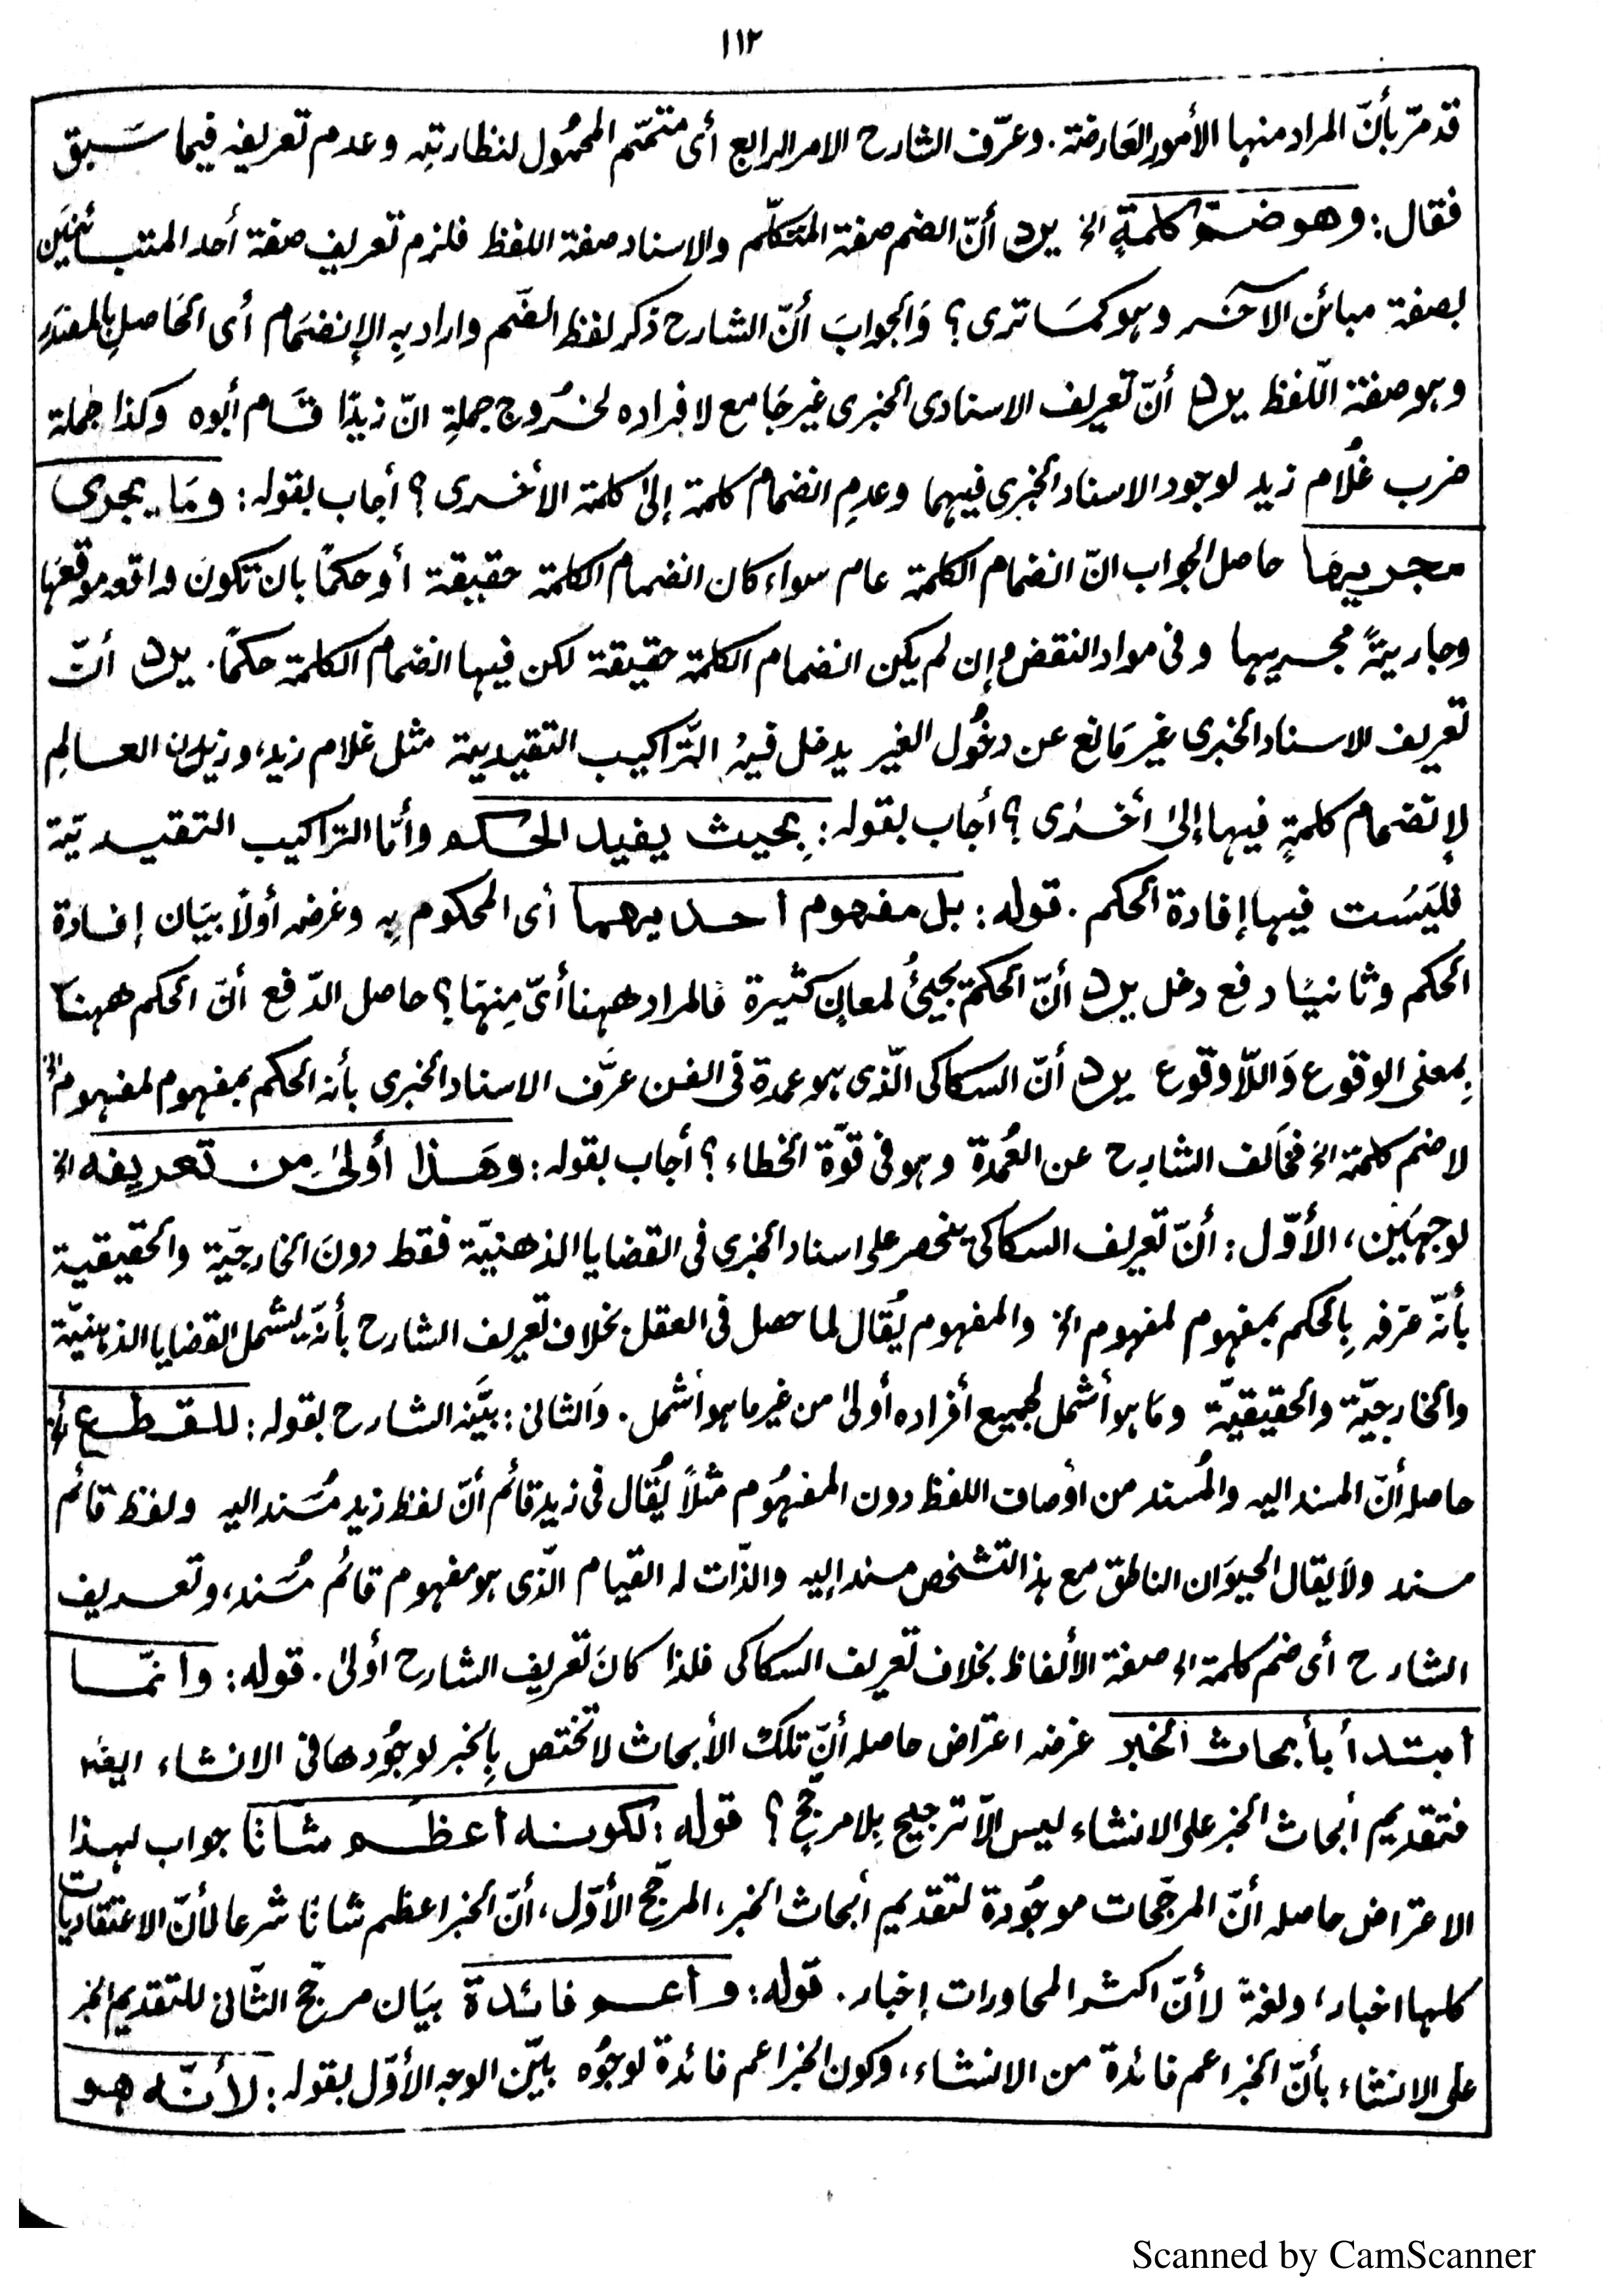 ١١٢
قد مرّ بأنّ المراد منها الأمور العَارضة. وعرّف الشارح الامر الرابع أى متمّم المحمُول لنظارتِه وعدم تعريفه فيما سَبق
فقال: وهو ضمّ كلمةٍ الخ يرد أنّ الضم صفة المتَكلّم والاسناد صفة اللفظ فلزم تعريف صفة أحد المتبائنَين
بصفة مبائن الآخَر وهو كمَا ترى؟ وَالجوابَ أنّ الشارح ذكر لفظ الضّم واراد بِه الإنضمَام أى الحَاصلِ بالمصدَرِ
وهو صفة اللّفظ يرد أنّ تعريف الاسنادى الخبرى غير جَامع لافراده لخُروج جملةِ انّ زيدًا قَام أبوه وكذا جملة
ضرب غُلام زيد لوجود الاسناد الخبرى فيهما وعدمِ انضمام كلمة إلىٰ كلمة الأخرى؟ أجاب بقوله: ومَا يجرى
مجريها حاصل الجواب انّ انضمام الكلمة عام سواء كان انضمام الكلمة حقيقة أو حكمًا بان تكون واقعه موقعهَا
وجاريةً مجريها وفى مواد النقض وإن لم يكن انضمام الكلمة حقيقة لكن فيها انضمام الكلمة حكمًا. يرد أنّ
تعريف الاسناد الخبرى غير مَانع عن دخُول الغير يدخل فيهُ التّراكيب التقيديّة مثل غلام زيد، وزيدن العالِم
لإنضمام كلمةٍ فيها إلىٰ أخرٰى؟ أجاب بقوله: بِحيث يفيد الحكم وأمّا التراكيب التقيديّة
فليَسَت فيها إفادة الحكم. قوله: بل مفهوم احديهما أى المحكوم بِه وغرضه أولاً بيَان إفادة
الحكم وثانيًا دفع دخل يرد أنّ الحكمَ يجيئُ لمعانٍ كثيرة فالمراد ههنا أىّ مِنهَا؟ حاصل الدّفع أنّ الحكم ههنَا
بِمعنى الوقوع وَاللّاوقوع يرد أنّ السكاكى الّذى هو عمدة فى الفن عرَّف الاسناد الخبرى بأنه الحكم بمفهوم لمفهوم الخ
لا ضم كلمة الخ فخَالف الشارح عن العُمدة وهو فى قوّة الخطاء؟ أجاب بقوله: وهَذا أولىٰ مِن تعريفه الخ
لوجهَين، الأوّل: أنّ تعريف السكاكى ينحصر على اسناد الخبرى فى القضايا الذهنيّة فقط دونَ الخارجيّة والحقيقية
بأنّه عرّفه بِالحكم بمفهوم لمفهوم الخ والمفهوم يُقال لما حصل فى العقل بخلاف تعريف الشارح بأنّه يشمل القضايا الذهنيّة
والخارجيّة والحقيقيّة ومَا هو أشمل لجميع أفراده أولىٰ من غير ما هو أشمل. وَالثانى: بيَّنه الشارح بقوله: للقطع بأنّ
حاصله أنّ المسند اليه والمُسند من أوصاف اللفظ دون المفهُوم مثلاً يُقال فى زيد قائم أنّ لفظ زيد مُسَند اليه ولفظ قائم
مسند ولَا يقال الحيوَان الناطق مع هذا التشخص مسند إليه والذّات له القيام الّذى هو مفهوم قائم مُسَند، وتعريف
الشارح أى ضم كلمة الخ صفة الألفاظ بخلاف تعريف السكاكى فلذا كانَ تعريف الشارح أولىٰ. قوله: وانمّا
ابتدأ بأبحاث الخبر غرضه اعتراض حاصله أنّ تلك الأبحاث لا تختص بِالخبر لوجُودها فى الانشاء ايضًا
فتقديم أبحاث الخبر على الانشاء ليس الّا ترجيح بِلا مرجّح؟ قوله: لكونه اعظم شانًا جواب لهذا
الاعتراض حاصله أنّ المرجّحات موجُودة لتقديم أبحاث الخبر، المرجّح الأوّل، أنّ الخبر اعظم شانًا شرعا لأنّ الاعتقاديات
كلها اخبار، ولغةً لأنّ اكثر المحاورات إخبار. قوله: واعم فائدة بيَان مرجّح الثّانى للتقديم الخبر
على الانشاء بأنّ الخبر اعم فائدة من الانشاء، وكون الخبر اعم فائدة لوجُوه بيّن الوجه الأوّل بقوله: لأنّه هو
Scanned by CamScanner